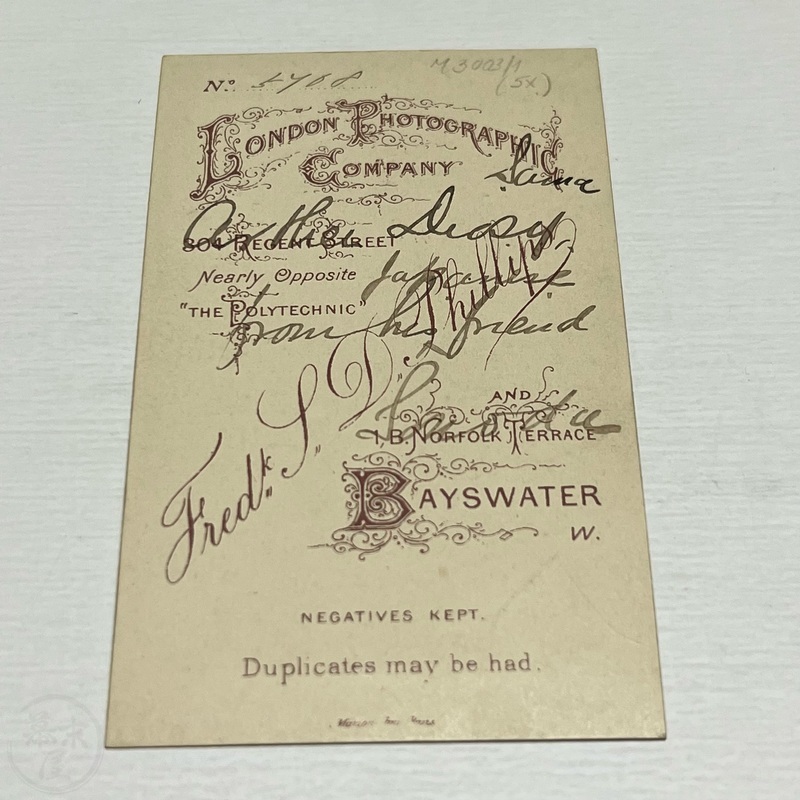 Nº 5768
M3003/1
(5x)
LONDON PHOTOGRAPHIC
COMPANY
Sama
Arthur Diosy
304 REGENT STREET
Nearly Opposite
Japanese
"THE POLYTECHNIC"
from his friend
Fredk. S. D. Phillips
AND
1. B. NORFOLK TERRACE
BAYSWATER
W.
NEGATIVES KEPT.
Duplicates may be had.